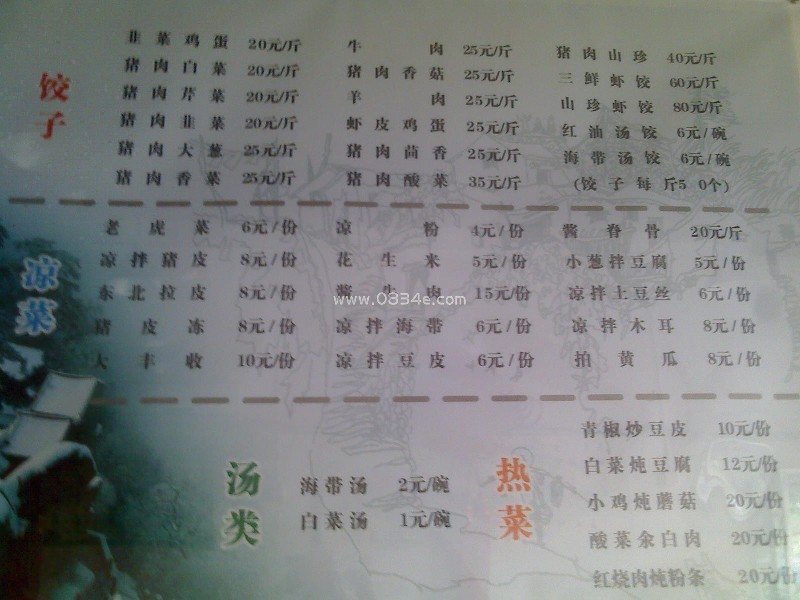 饺子
韭菜鸡蛋 20元/斤 牛肉 25元/斤 猪肉山珍 40元/斤
猪肉白菜 20元/斤 猪肉香菇 25元/斤 三鲜虾饺 60元/斤
猪肉芹菜 20元/斤 羊肉 25元/斤 山珍虾饺 80元/斤
猪肉韭菜 20元/斤 虾皮鸡蛋 25元/斤 红油汤饺 6元/碗
猪肉大葱 25元/斤 猪肉茴香 25元/斤 海带汤饺 6元/碗
猪肉香菜 25元/斤 猪肉酸菜 35元/斤 (饺子每斤50个)
凉菜
老虎菜 6元/份 凉粉 4元/份 酱脊骨 20元/斤
凉拌猪皮 8元/份 花生米 5元/份 小葱拌豆腐 5元/份
东北拉皮 8元/份 酱牛肉 15元/份 凉拌土豆丝 6元/份
www.0334e.com
猪皮冻 8元/份 凉拌海带 6元/份 凉拌木耳 8元/份
大丰收 10元/份 凉拌豆皮 6元/份 拍黄瓜 8元/份
汤类
海带汤 2元/碗
白菜汤 1元/碗
热菜
青椒炒豆皮 10元/份
白菜炖豆腐 12元/份
小鸡炖蘑菇 20元/份
酸菜汆白肉 20元/份
红烧肉炖粉条 20元/份